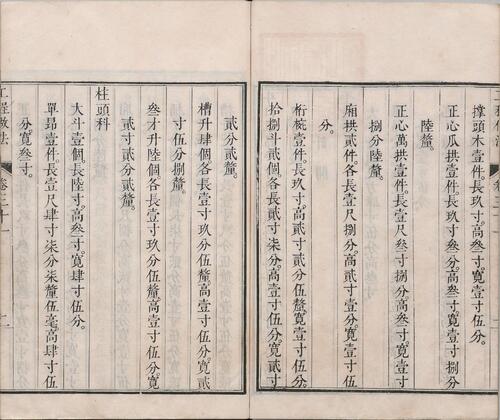 撑頭木壹件。長玖寸。高叁寸。寬壹寸伍分。
正心瓜拱壹件。長玖寸叁分。高叁寸。寬壹寸捌分
陸釐。
正心萬拱壹件。長壹尺叁寸捌分。高叁寸。寬壹寸
捌分陸釐。
廂拱貳件。各長壹尺捌分。高貳寸。寬壹寸伍
分。
桁椀壹件。長玖寸。高貳寸貳分伍釐。寬壹寸伍分。
拾捌斗貳個。各長貳寸柒分。高壹寸伍分。寬貳寸
貳分貳釐。
槽升肆個。各長壹寸玖分伍釐。高壹寸伍分。寬貳
寸伍分捌釐。
叁才升陸個。各長壹寸玖分伍釐。高壹寸伍分。寬
貳寸貳分貳釐。
柱頭科
大斗壹個。長陸寸。高叁寸。寬肆寸伍分。
單昂壹件。長壹尺肆寸柒分柒釐伍毫。高肆寸伍
分。寬叁寸。
工程做法 卷三十一 二